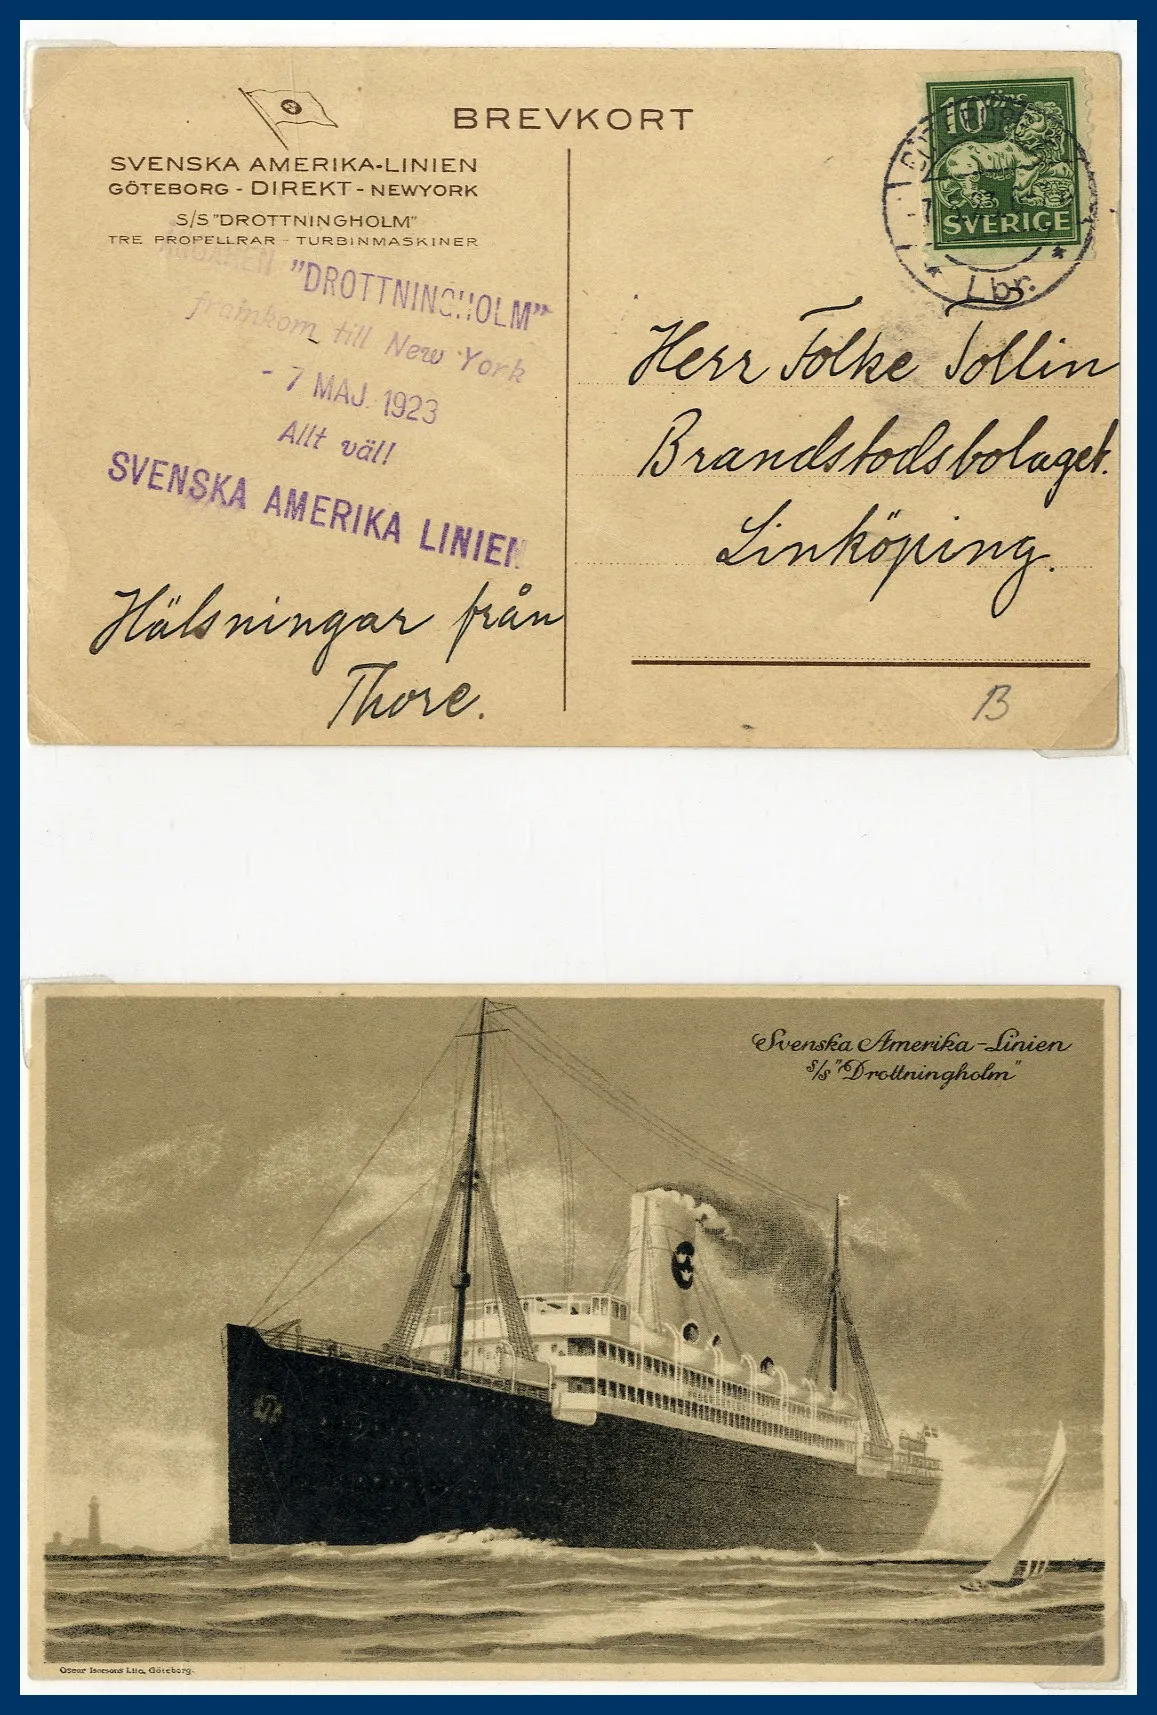 BREVKORT
SVENSKA AMERIKA-LINIEN
GÖTEBORG - DIREKT - NEWYORK
S/S "DROTTNINGHOLM"
TRE PROPELLRAR - TURBINMASKINER
ÅNGAREN "DROTTNINGHOLM"
framkom till New York
- 7 MAJ 1923
Allt väl!
SVENSKA AMERIKA LINIEN
Hälsningar från
Thore.
10 ÖRE
SVERIGE
Lbr.
Herr Folke Tollin
Brandstodsbolaget.
Linköping.
B
Svenska Amerika-Linien
s/s "Drottningholm"
Oscar Isacsons Lito, Göteborg.